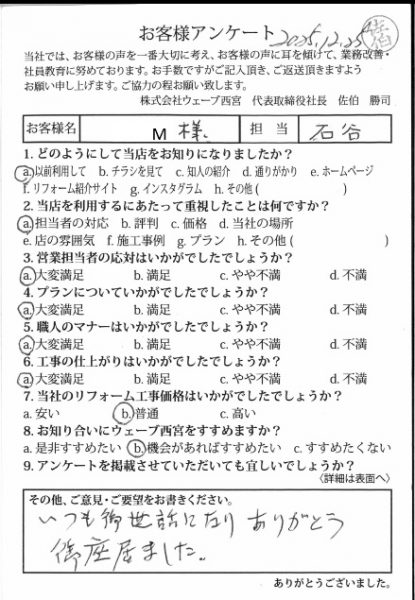 お客様アンケート 2025.12.25 佐伯
当社では、お客様の声を一番大切に考え、お客様の声に耳を傾けて、業務改善・
社員教育に努めております。お手数ですがご記入頂き、ご返送頂きますよう
お願い申し上げます。ご協力の程お願い致します。
株式会社ウェーブ西宮 代表取締役社長 佐伯 勝司
お客様名 M 様 担当 石谷
1. どのようにして当店をお知りになりましたか？
a.以前利用して b. チラシを見て c. 知人の紹介 d. 通りがかり e. ホームページ
f. リフォーム紹介サイト g. インスタグラム h. その他 ( )
2. 当店を利用するにあたって重視したことは何ですか？
a.担当者の対応 b. 評判 c. 価格 d. 当社の場所
e. 店の雰囲気 f. 施工事例 g. プラン h. その他 ( )
3. 営業担当者の応対はいかがでしたでしょうか？
a.大変満足 b. 満足 c. やや不満 d. 不満
4. プランについていかがでしたでしょうか？
a.大変満足 b. 満足 c. やや不満 d. 不満
5. 職人のマナーはいかがでしたでしょうか？
a.大変満足 b. 満足 c. やや不満 d. 不満
6. 工事の仕上がりはいかがでしたでしょうか？
a.大変満足 b. 満足 c. やや不満 d. 不満
7. 当社のリフォーム工事価格はいかがでしたでしょうか？
a. 安い b.普通 c. 高い
8. お知り合いにウェーブ西宮をすすめますか？
a. 是非すすめたい b.機会があればすすめたい c. すすめたくない
9. アンケートを掲載させていただいても宜しいでしょうか？
〈詳細は表面へ〉
その他、ご意見・ご要望をお書きください。
いつも御世話になり ありがとう
御座居ました。
ありがとうございました。